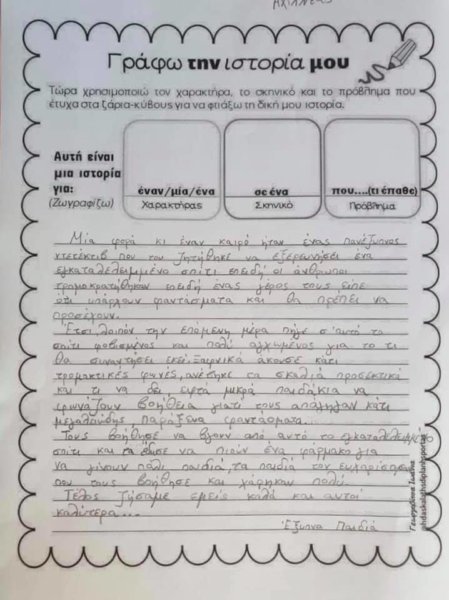 ΑΧΙΛΛΕΑΣ
Γράφω την ιστορία μου
Τώρα χρησιμοποιώ τον χαρακτήρα, το σκηνικό και το πρόβλημα που
έτυχα στα ζάρια-κύβους για να φτιάξω τη δική μου ιστορία.
Αυτή είναι
μια ιστορία
για:
(Ζωγραφίζω)
έναν/μία/ένα
Χαρακτήρας
σε ένα
Σκηνικό
που....(τι έπαθε)
Πρόβλημα
Μία φορά κι έναν καιρό ήταν ένας πανέξυπνος
ντετέκτιβ που του ζητήθηκε να εξερευνήσει ένα
εγκαταλελειμμένο σπίτι επειδή οι άνθρωποι
τρομοκρατήθηκαν επειδή ένας γέρος τους είπε
ότι υπάρχουν φαντάσματα και θα πρέπει να
προσέχουν.
Έτσι λοιπόν την επόμενη μέρα πήγε σ'αυτό το
σπίτι φοβισμένος και πολύ αγχωμένος για το τι
θα συναντήσει εκεί. Ξαφνικά άκουσε κάτι
τρομακτικές φωνές, ανέβηκε τα σκαλιά προσεκτικά
και τι να δει εφτά μικρά παιδάκια να
φωνάζουν βοήθεια γιατί τους απήγαγαν κάτι
παράξενα φαντάσματα...
Τους βοήθησε να βγουν από αυτό το εγκαταλελειμμένο
σπίτι και τα έδωσε να πιούν ένα φάρμακο για
να γίνουν πάλι παιδιά, τα παιδιά τον ευχαρίστησαν
που τους βοήθησε και χάρηκαν πολύ.
Τέλος ζήσαμε εμείς καλά και αυτοί
καλύτερα...
Έξυπνα Παιδιά